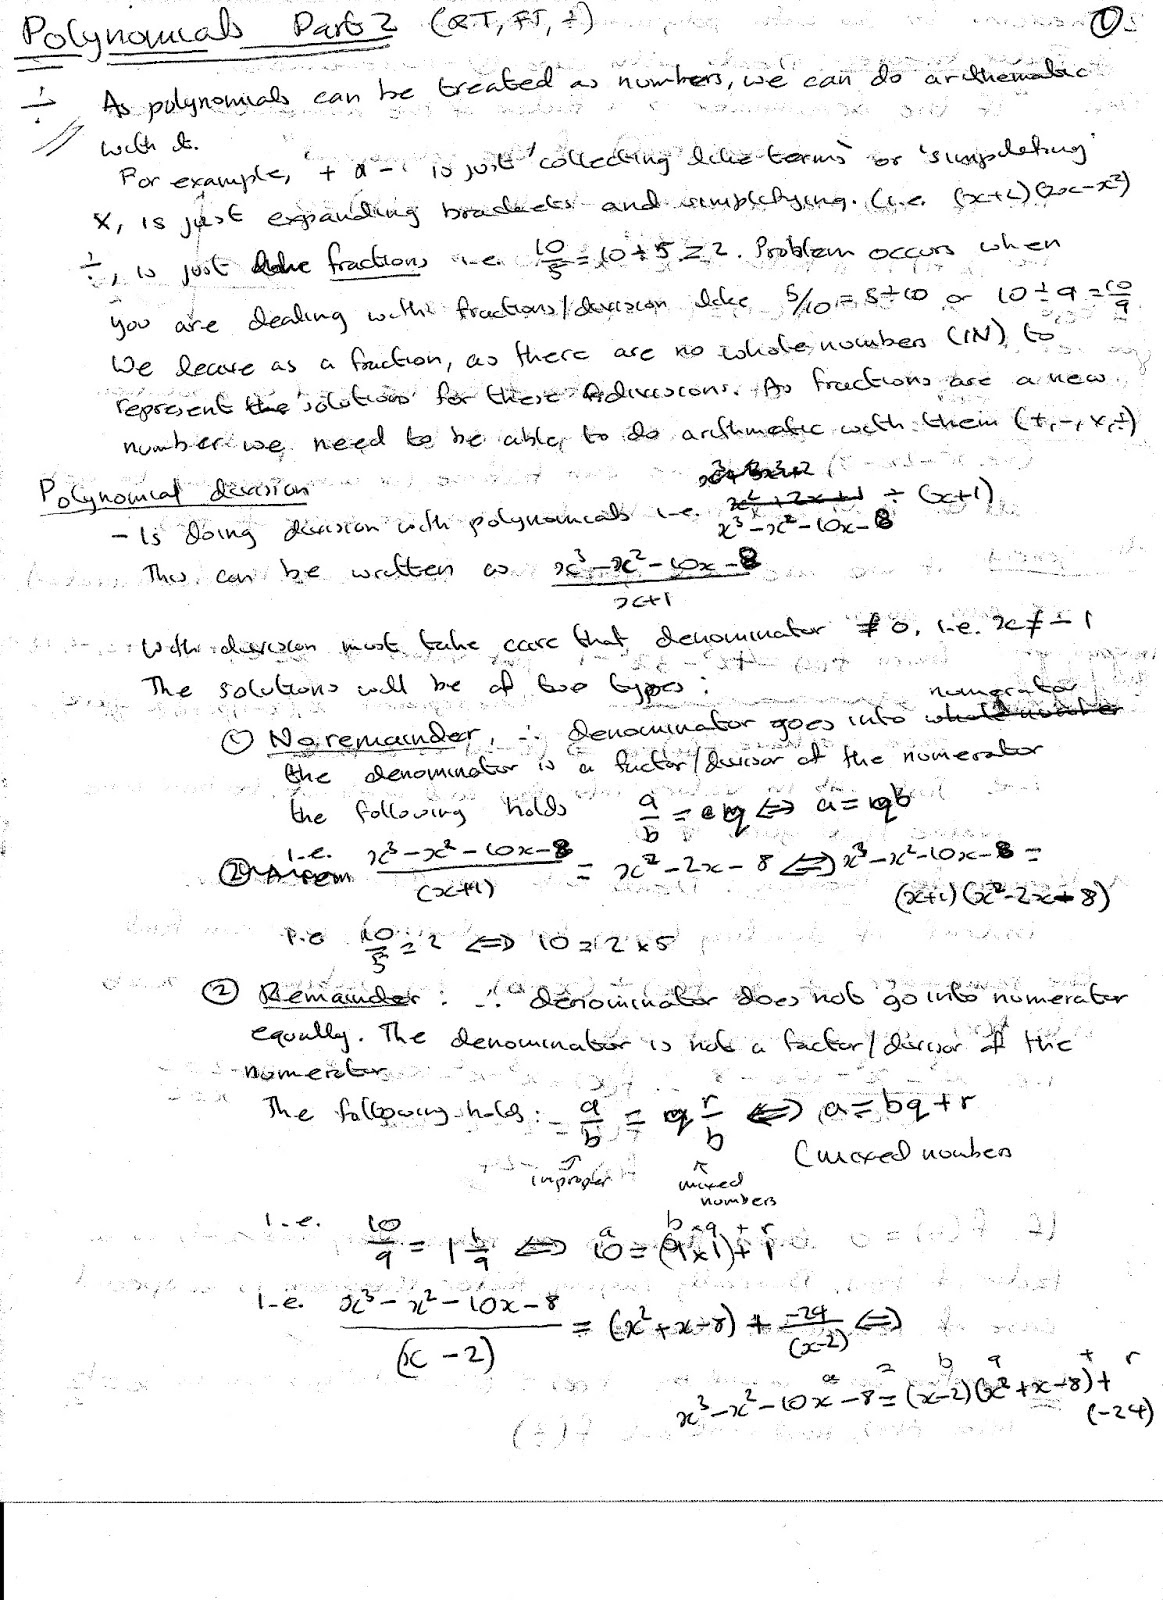 Polynomials Part 2 (RT, FT, ÷) ①
÷ As polynomials can be treated as numbers, we can do arithematic
with it.
For example, + a - is just 'collecting like terms' or 'simplifying'
x, is just expanding brackets and simplifying. (i.e. (x+2)(2x-x²)
÷, is just like fractions i.e. 10/5 = 10÷5 = 2. Problem occurs when
you are dealing with fractions/division like 5/10 = 5÷10 or 10÷9 = 10/9
We leave as a fraction, as there are no whole numbers (IN) to
represent the solution for these divisions. As fractions are a new
number we need to be able to do arithmetic with them (+,-,x,÷)
Polynomial division
x² + 2x + 1 ÷ (x+1)
- Is doing division with polynomials i.e. x³-x²-10x-8
This can be written as x³-x²-10x-8 / x+1
With division must take care that denominator ≠ 0, i.e. x ≠ -1
The solutions will be of two types:
numerator
① No remainder, ∴ denominator goes into whole number
the denominator is a factor/divisor of the numerator
the following holds a/b = q ⇔ a = qb
i.e. x³-x²-10x-8 / (x+1) = x²-2x-8 ⇔ x³-x²-10x-8 =
(x+1)(x²-2x-8)
10/5 = 2 ⇔ 10 = 2x5
② Remainder: ∴ denominator does not go into numerator
equally. The denominator is not a factor/divisor of the
numerator
The following holds: a/b = q r/b ⇔ a = bq + r
(mixed numbers
improper mixed
numbers
a b x q + r
i.e. 10/9 = 1 1/9 ⇔ 10 = (9x1)+1
i.e. x³-x²-10x-8 / (x-2) = (x²+x-8) + -24/(x-2) ⇔
a = b q + r
x³-x²-10x-8 = (x-2)(x²+x-8)+
(-24)